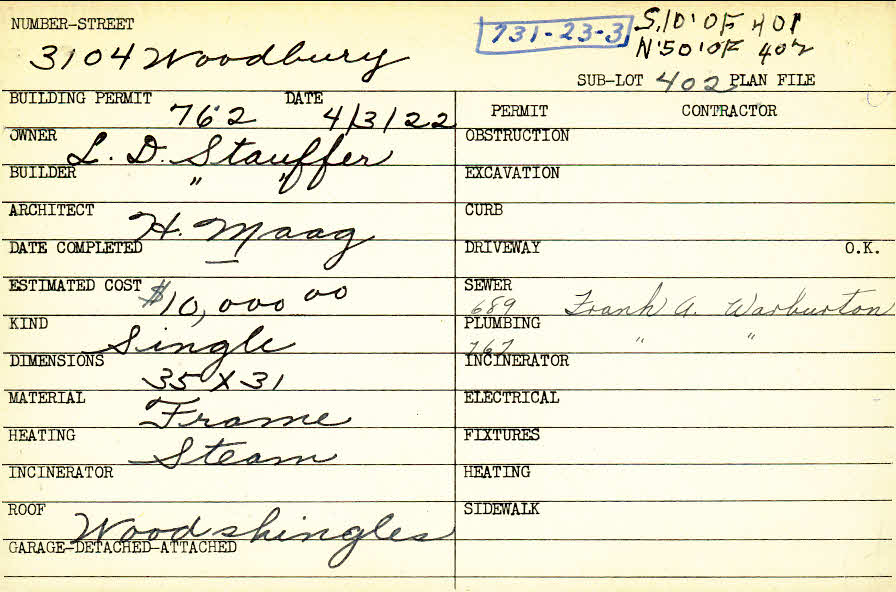 NUMBER-STREET
3104 Woodbury
731-23-3
S.10' OF 401
N'50' OF 402
SUB-LOT 402 PLAN FILE
BUILDING PERMIT 762 DATE 4/3/22
OWNER L. D. Stauffer
BUILDER " "
ARCHITECT H. Maag
DATE COMPLETED —
ESTIMATED COST $10,000 00
KIND Single
DIMENSIONS 35 X 31
MATERIAL Frame
HEATING Steam
INCINERATOR
ROOF Wood shingles
GARAGE-DETACHED-ATTACHED
PERMIT CONTRACTOR
OBSTRUCTION
EXCAVATION
CURB
DRIVEWAY O.K.
SEWER 689 Frank A. Warburton
PLUMBING 767 " "
INCINERATOR
ELECTRICAL
FIXTURES
HEATING
SIDEWALK